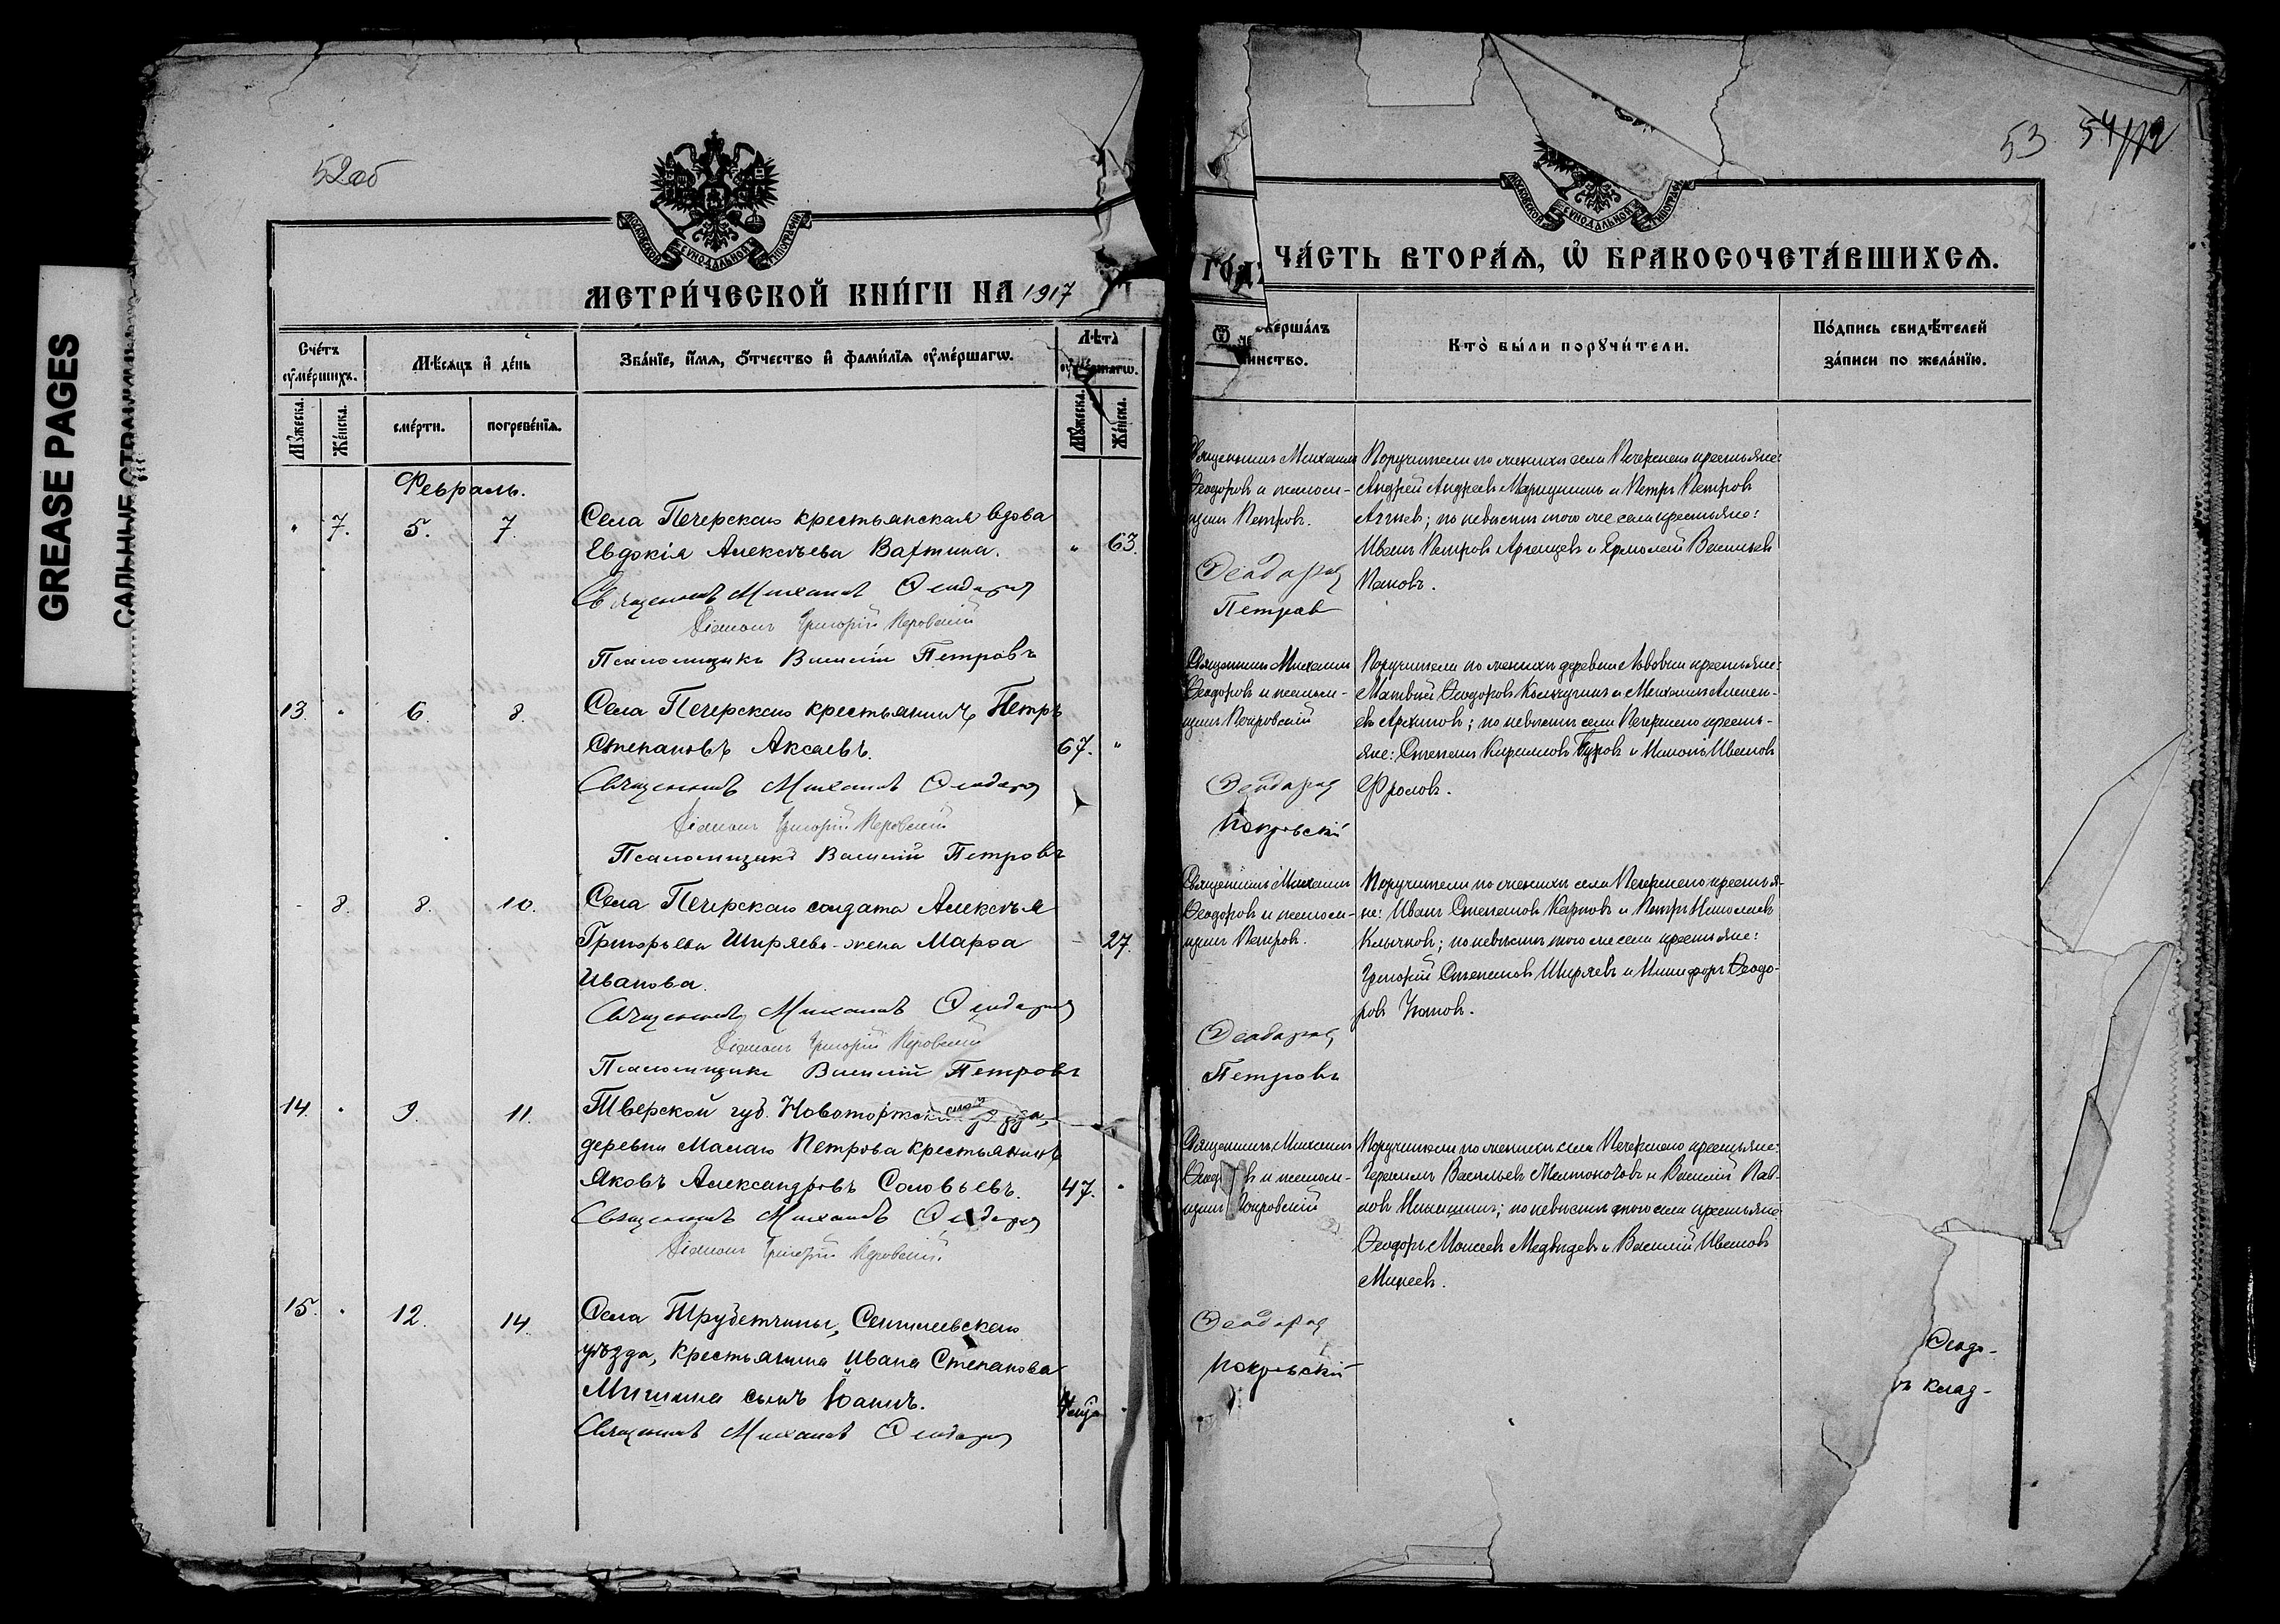 GREASE PAGES
САЛЬНЫЕ СТРАНИЦЫ
52об
МОСКОВСКОЙ СѴНОДАЛЬНОЙ ТИПОГРАФІИ
МЕТРИ́ЧЕСКОЙ КНИ́ГИ НА 1917
Сче́тъ ᲂу҆ме́ршихъ.
Мѣ́сѧцъ и҆ де́нь
Зва́нїе, и҆́мѧ, ѻ҆́тчество и҆ фами́лїѧ ᲂу҆ме́ршагѡ.
Лѣта̀ ᲂу҆ме́ршагѡ.
Мꙋ́жеска.
Же́нска.
сме́рти.
погребе́нїѧ.
Мꙋ́жеска.
Же́нска.
Февраль.
" 7. 5. 7. Села Печерскаго крестьянская вдова
Евдокія Алексѣева " 63.
Священникъ Михаилъ Ѳеодоров
Діаконъ Григорій Покровскій
Псаломщикъ Василій Петровъ
13. " 6. 8. Села Печерскаго крестьянинъ Петръ
Степановъ Аксаевъ. 67. "
Священникъ Михаилъ Ѳеодоров
Діаконъ Григорій Покровскій
Псаломщикъ Василій Петровъ
- 8. 8. 10. Села Печерскаго солдата Алексѣя
Григорьева Ширяева - жена Марѳа - 27.
Иванова.
Священникъ Михаилъ Ѳеодоров
Діаконъ Григорій Покровскій
Псаломщикъ Василій Петровъ
14. " 9. 11. Тверской губ. уѣзда,
деревни Малаго Петрова крестьянинъ
Яковъ Александровъ Соловьевъ. 47. "
Священникъ Михаилъ Ѳеодоров
Діаконъ Григорій Покровскій.
15. " 12. 14. Села Трубетчины, Сенгилеевскаго
уѣзда, крестьянина Ивана Степанова
Мигунина сынъ Іоаннъ.
Священникъ Михаилъ Ѳеодоров
53 54
МОСКОВСКОЙ СѴНОДАЛЬНОЙ ТИПОГРАФІИ
ГО́ДЪ ЧА́СТЬ ВТОРА́Ѧ, Ѡ҆ БРАКОСОЧЕТА́ВШИХСѦ.
верша́лъ
инство.
Кто̀ бы́ли порꙋчи́тели.
По́дпись свидѣ́телей
за́писи по жела́нїю.
Священникъ Михаилъ
Ѳеодоровъ и псалом-
щикъ Петровъ.
Ѳеодоров
Петров
Поручители по женихѣ села Печерскаго крестьяне:
Андрей Андреевъ и Петръ Петровъ
по невѣстѣ того же села крестьяне:
Иванъ Петровъ и Ермолай Васильевъ
Пановъ.
Священникъ Михаилъ
Ѳеодоровъ и псалом-
щикъ Покровскій
Ѳеодоров
Покровскій
Поручители по женихѣ деревни Львовки крестьяне:
Матвѣй Ѳеодоровъ и Михаилъ Алексе-
евъ Архиповъ; по невѣстѣ села Печерскаго кресть-
яне: Степанъ Кирилловъ Гуровъ и Ивановъ
Фроловъ.
Священникъ Михаилъ
Ѳеодоровъ и псалом-
щикъ Петровъ.
Ѳеодоров
Петровъ
Поручители по женихѣ села Печерскаго крестья-
не: Иванъ Степановъ Карповъ и Петръ Николаевъ
Клычковъ; по невѣстѣ того же села крестьяне:
Григорій Степановъ Ширяевъ и Никифоръ Ѳеодо-
ровъ
Священникъ Михаилъ
Ѳеод въ и псалом-
щикъ Покровскій
Ѳеодоров
Покровскій
Поручители по женихѣ села Печерскаго крестьяне:
Герасимъ Васильевъ и Василій Пав-
ловъ по невѣстѣ села крестьяне
Ѳеодоръ Моисеевъ Медвѣдевъ и Василій Ивановъ
Михеевъ.
Ѳеодо-
ъ клад-